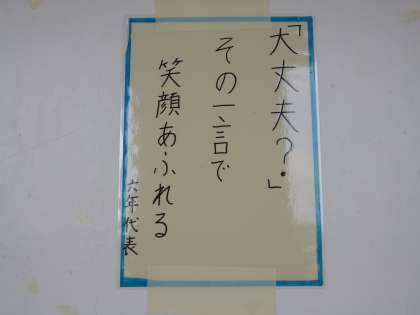 「大丈夫?」
その一言で
笑顔あふれる
六年代表